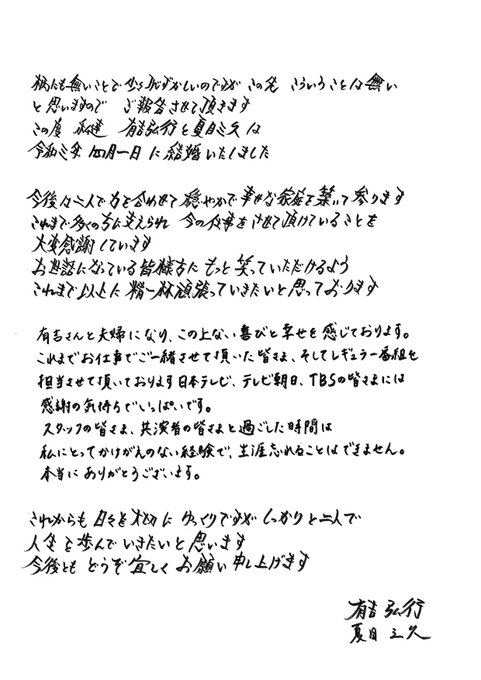 柄にも無いことで 少し恥ずかしいのですが この先 こういうことは無い
と思いますので ご報告させて頂きます
この度 私達 有吉弘行と夏目三久は
令和三年 四月一日に結婚いたしました
今後は二人で力を合わせて 穏やかで幸せな家庭を築いて参ります
これまで多くの方に支えられ 今の仕事をさせて頂けていることを
大変感謝しています
お世話になっている皆様方に もっと笑っていただけるよう
これまで以上に 精一杯頑張っていきたいと思っております
有吉さんと夫婦になり、この上ない喜びと幸せを感じております。
これまでお仕事でご一緒させて頂いた皆さま、そしてレギュラー番組を
担当させて頂いております日本テレビ、テレビ朝日、TBSの皆さまには
感謝の気持ちでいっぱいです。
スタッフの皆さま、共演者の皆さまと過ごした時間は
私にとってかけがえのない経験で、生涯忘れることはできません。
本当にありがとうございます。
これからも 日々を大切に ゆっくりですが しっかりと二人で
人生を歩んでいきたいと思います
今後とも どうぞ宜しく お願い申し上げます
有吉弘行
夏目三久